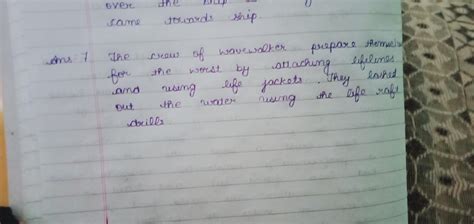 over the
same towards ship.
Ans 7 The crew of wavewalker prepare themsel
for the worst by attaching lifelines
and using life jackets. They lashed
out the water using the life raft
drills